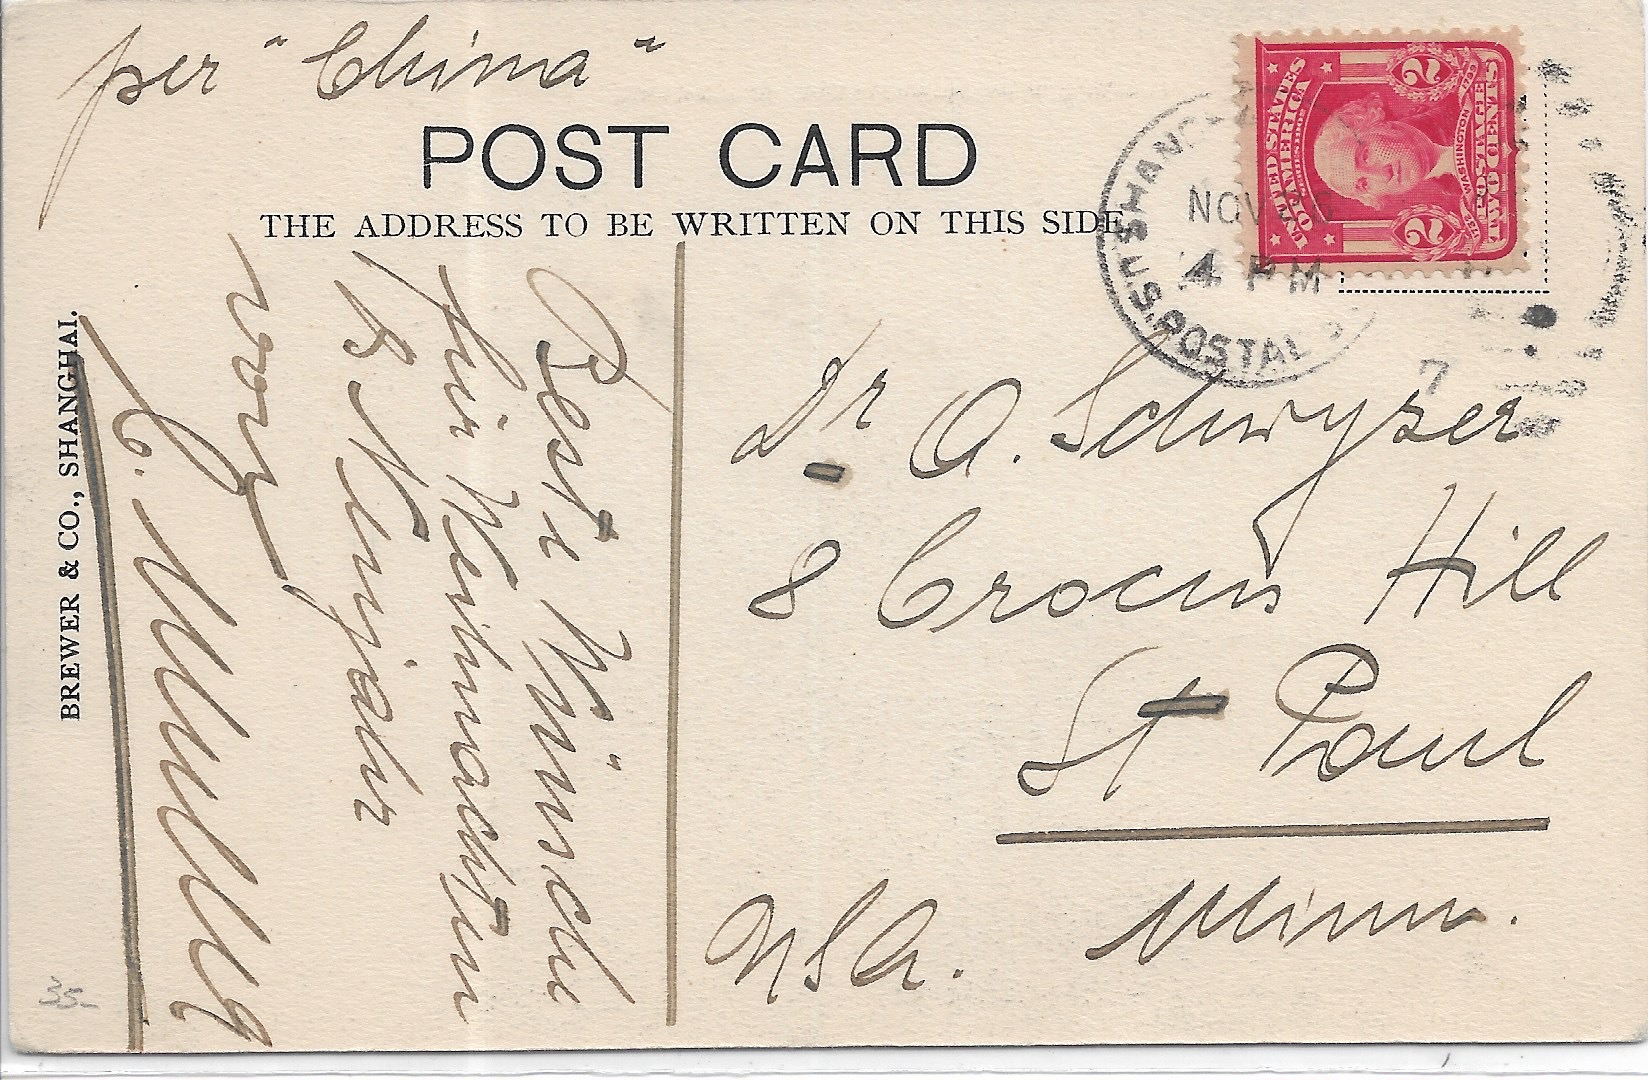 per "China"
POST CARD
THE ADDRESS TO BE WRITTEN ON THIS SIDE
SHANGHAI
NOV
4 PM
U.S. POSTAL
7
UNITED STATES
OF AMERICA
SERIES 1902
2
2
WASHINGTON
POSTAGE
TWO CENTS
Dr A. Schwyzer
8 Crocus Hill
St Paul
Minn.
USA.
Beste Wünsche
für Weihnachten
& Neujahr
BREWER & CO., SHANGHAI.
35-